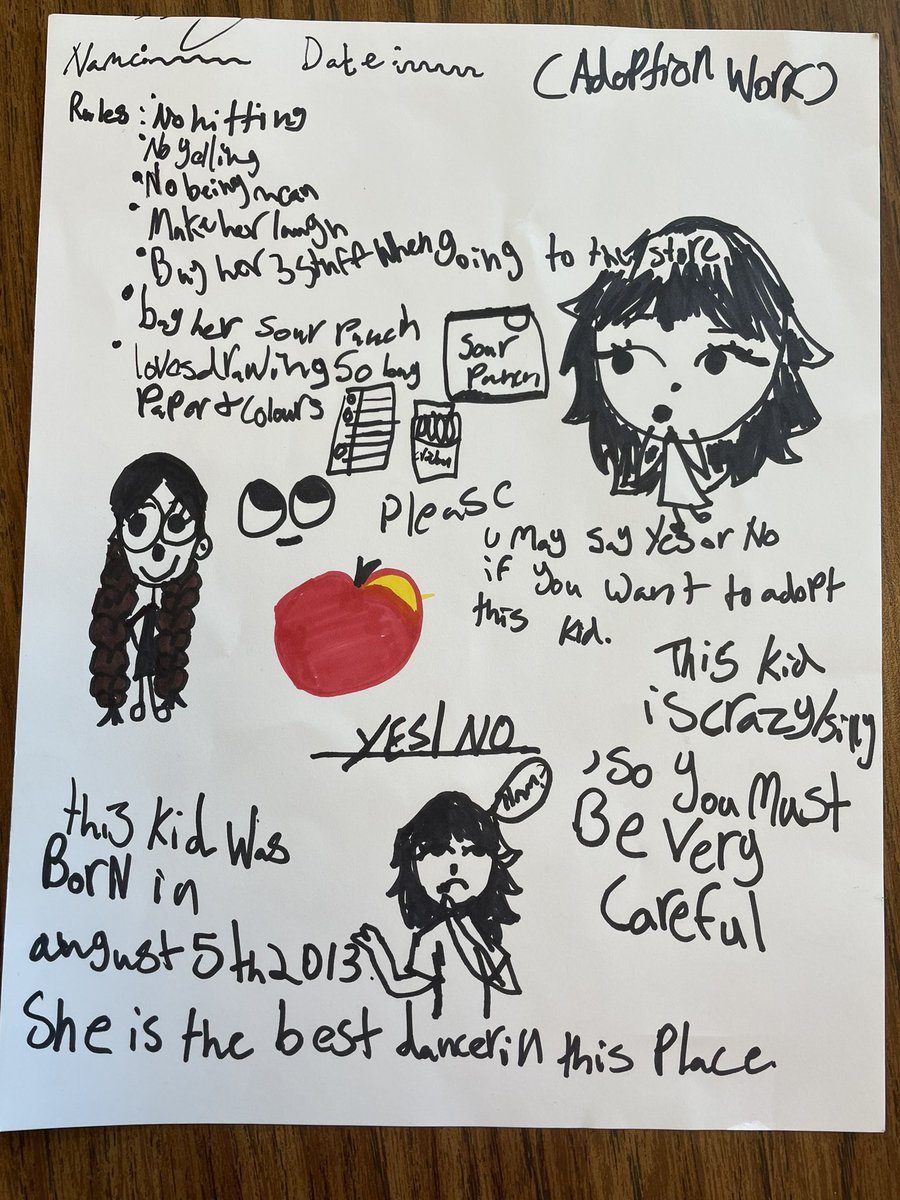 Name: Date: (Adoption Work)
Rules: No hitting
No yelling
No being mean
Make her laugh
Buy her 3 stuff when going to the store
buy her sour Punch
loves drawing So buy
Paper & colours
Sour
Punch
Please
u May say Yes or No
if you want to adopt
this kid.
This kid
is crazy/silly
, so you Must
Be very
Careful
YES/NO
Hmm?
this kid was
Born in
august 5th 2013.
She is the best dancer in this Place.